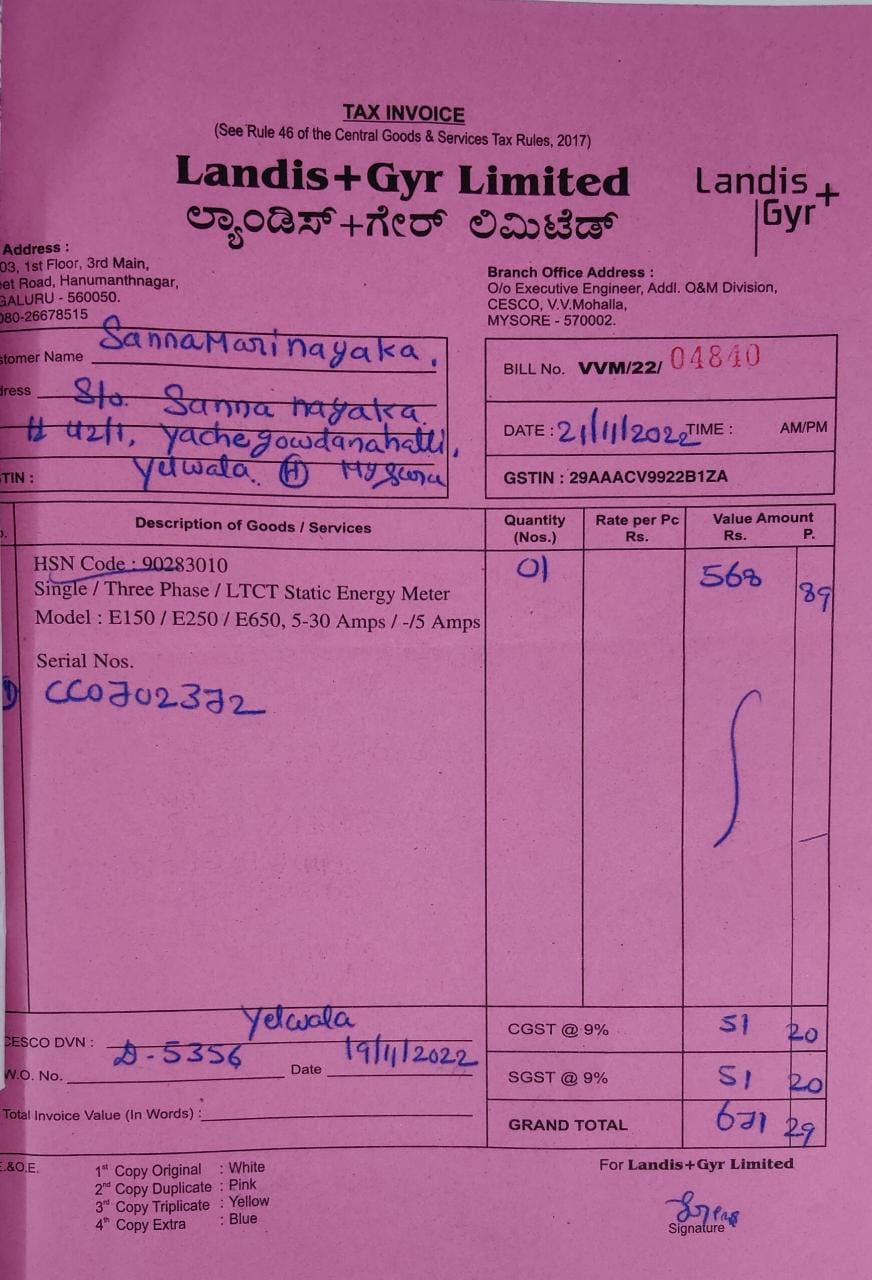 TAX INVOICE
(See Rule 46 of the Central Goods & Services Tax Rules, 2017)
Landis+Gyr Limited
ಲ್ಯಾಂಡಿಸ್+ಗೇರ್ ಲಿಮಿಟೆಡ್
Landis+
Gyr
Address :
03, 1st Floor, 3rd Main,
et Road, Hanumanthnagar,
GALURU - 560050.
080-26678515
Branch Office Address :
O/o Executive Engineer, Addl. O&M Division,
CESCO, V.V.Mohalla,
MYSORE - 570002.
stomer Name SannaMarinayaka.
dress S/o. Sanna nayaka
# 42/1, Yachegowdanahalli,
TIN : Yelwala. (H) Mysuru
BILL No. VVM/22/ 04840
DATE : 21/11/2022 TIME : AM/PM
GSTIN : 29AAACV9922B1ZA
Description of Goods / Services Quantity (Nos.) Rate per Pc Rs. Value Amount Rs. P.
HSN Code : 90283010 01 568 89
Single / Three Phase / LTCT Static Energy Meter
Model : E150 / E250 / E650, 5-30 Amps / -/5 Amps
Serial Nos.
1) CC0702372
CESCO DVN : Yelwala
W.O. No. D-5356 Date 19/11/2022
Total Invoice Value (In Words) :
CGST @ 9% 51 20
SGST @ 9% 51 20
GRAND TOTAL 671 29
E.&O.E.
1st Copy Original : White
2nd Copy Duplicate : Pink
3rd Copy Triplicate : Yellow
4th Copy Extra : Blue
For Landis+Gyr Limited
Signature